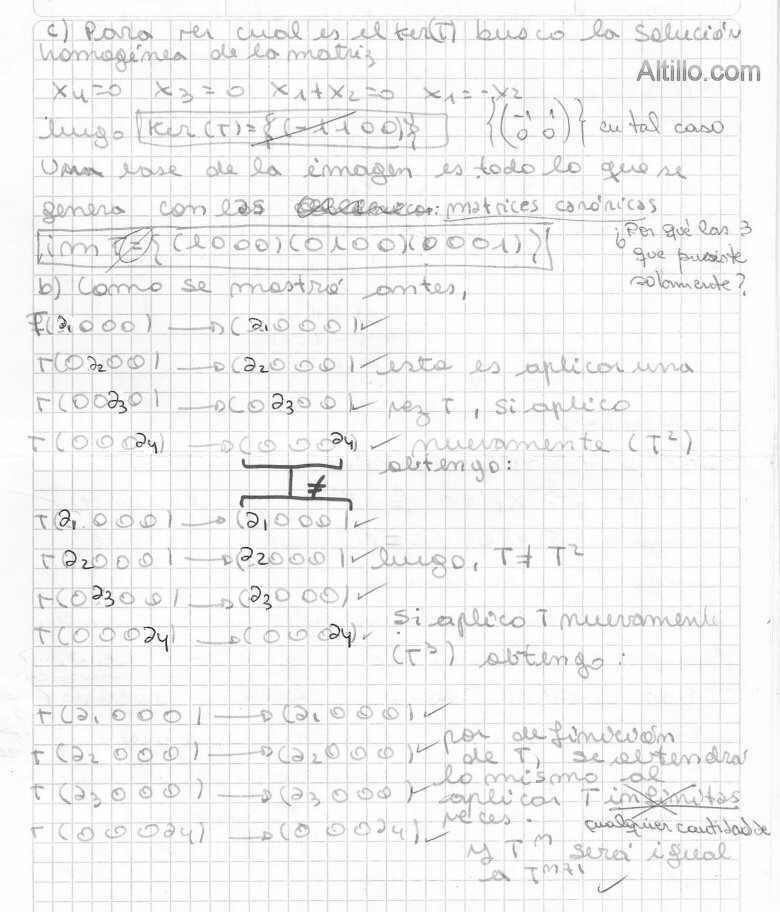 c) Para ver cual es el Ker(T) busco la solución
homogénea de la matriz
Altillo.com
x4=0 x3=0 x1+x2=0 x1=-x2
luego Ker(T)={(-1 1 0 0)} {(-1 1 0 0)} en tal caso
Una base de la imagen es todo lo que se
genera con las matrices canónicas
im T={(1000)(0100)(0001)}
¿Por qué las 3
que pusiste
solamente?
b) Como se mostró antes,
T(a1 000) → (a1 000) ✓
T(0a2 00) → (a2 000) ✓ esto es aplicar una
T(00a3 0) → (0a3 00) ✓ vez T, si aplico
T(000a4) → (000a4) ✓ nuevamente (T²)
obtengo:
≠
T(a1 000) → (a1 000) ✓
T(a2 000) → (a2 000) ✓ luego, T≠T²
T(0a3 00) → (a3 000) ✓
T(000a4) → (000a4) ✓ Si aplico T nuevamente
(T³) obtengo:
T(a1 000) → (a1 000) ✓
T(a2 000) → (a2 000) ✓ por definición
de T, se obtendrá
lo mismo al
T(a3 000) → (a3 000) ✓ aplicar T infinitas
veces.
cualquier cantidad de
T(000a4) → (000a4) ✓
y Tⁿ será igual
a Tⁿ⁺¹ ✓